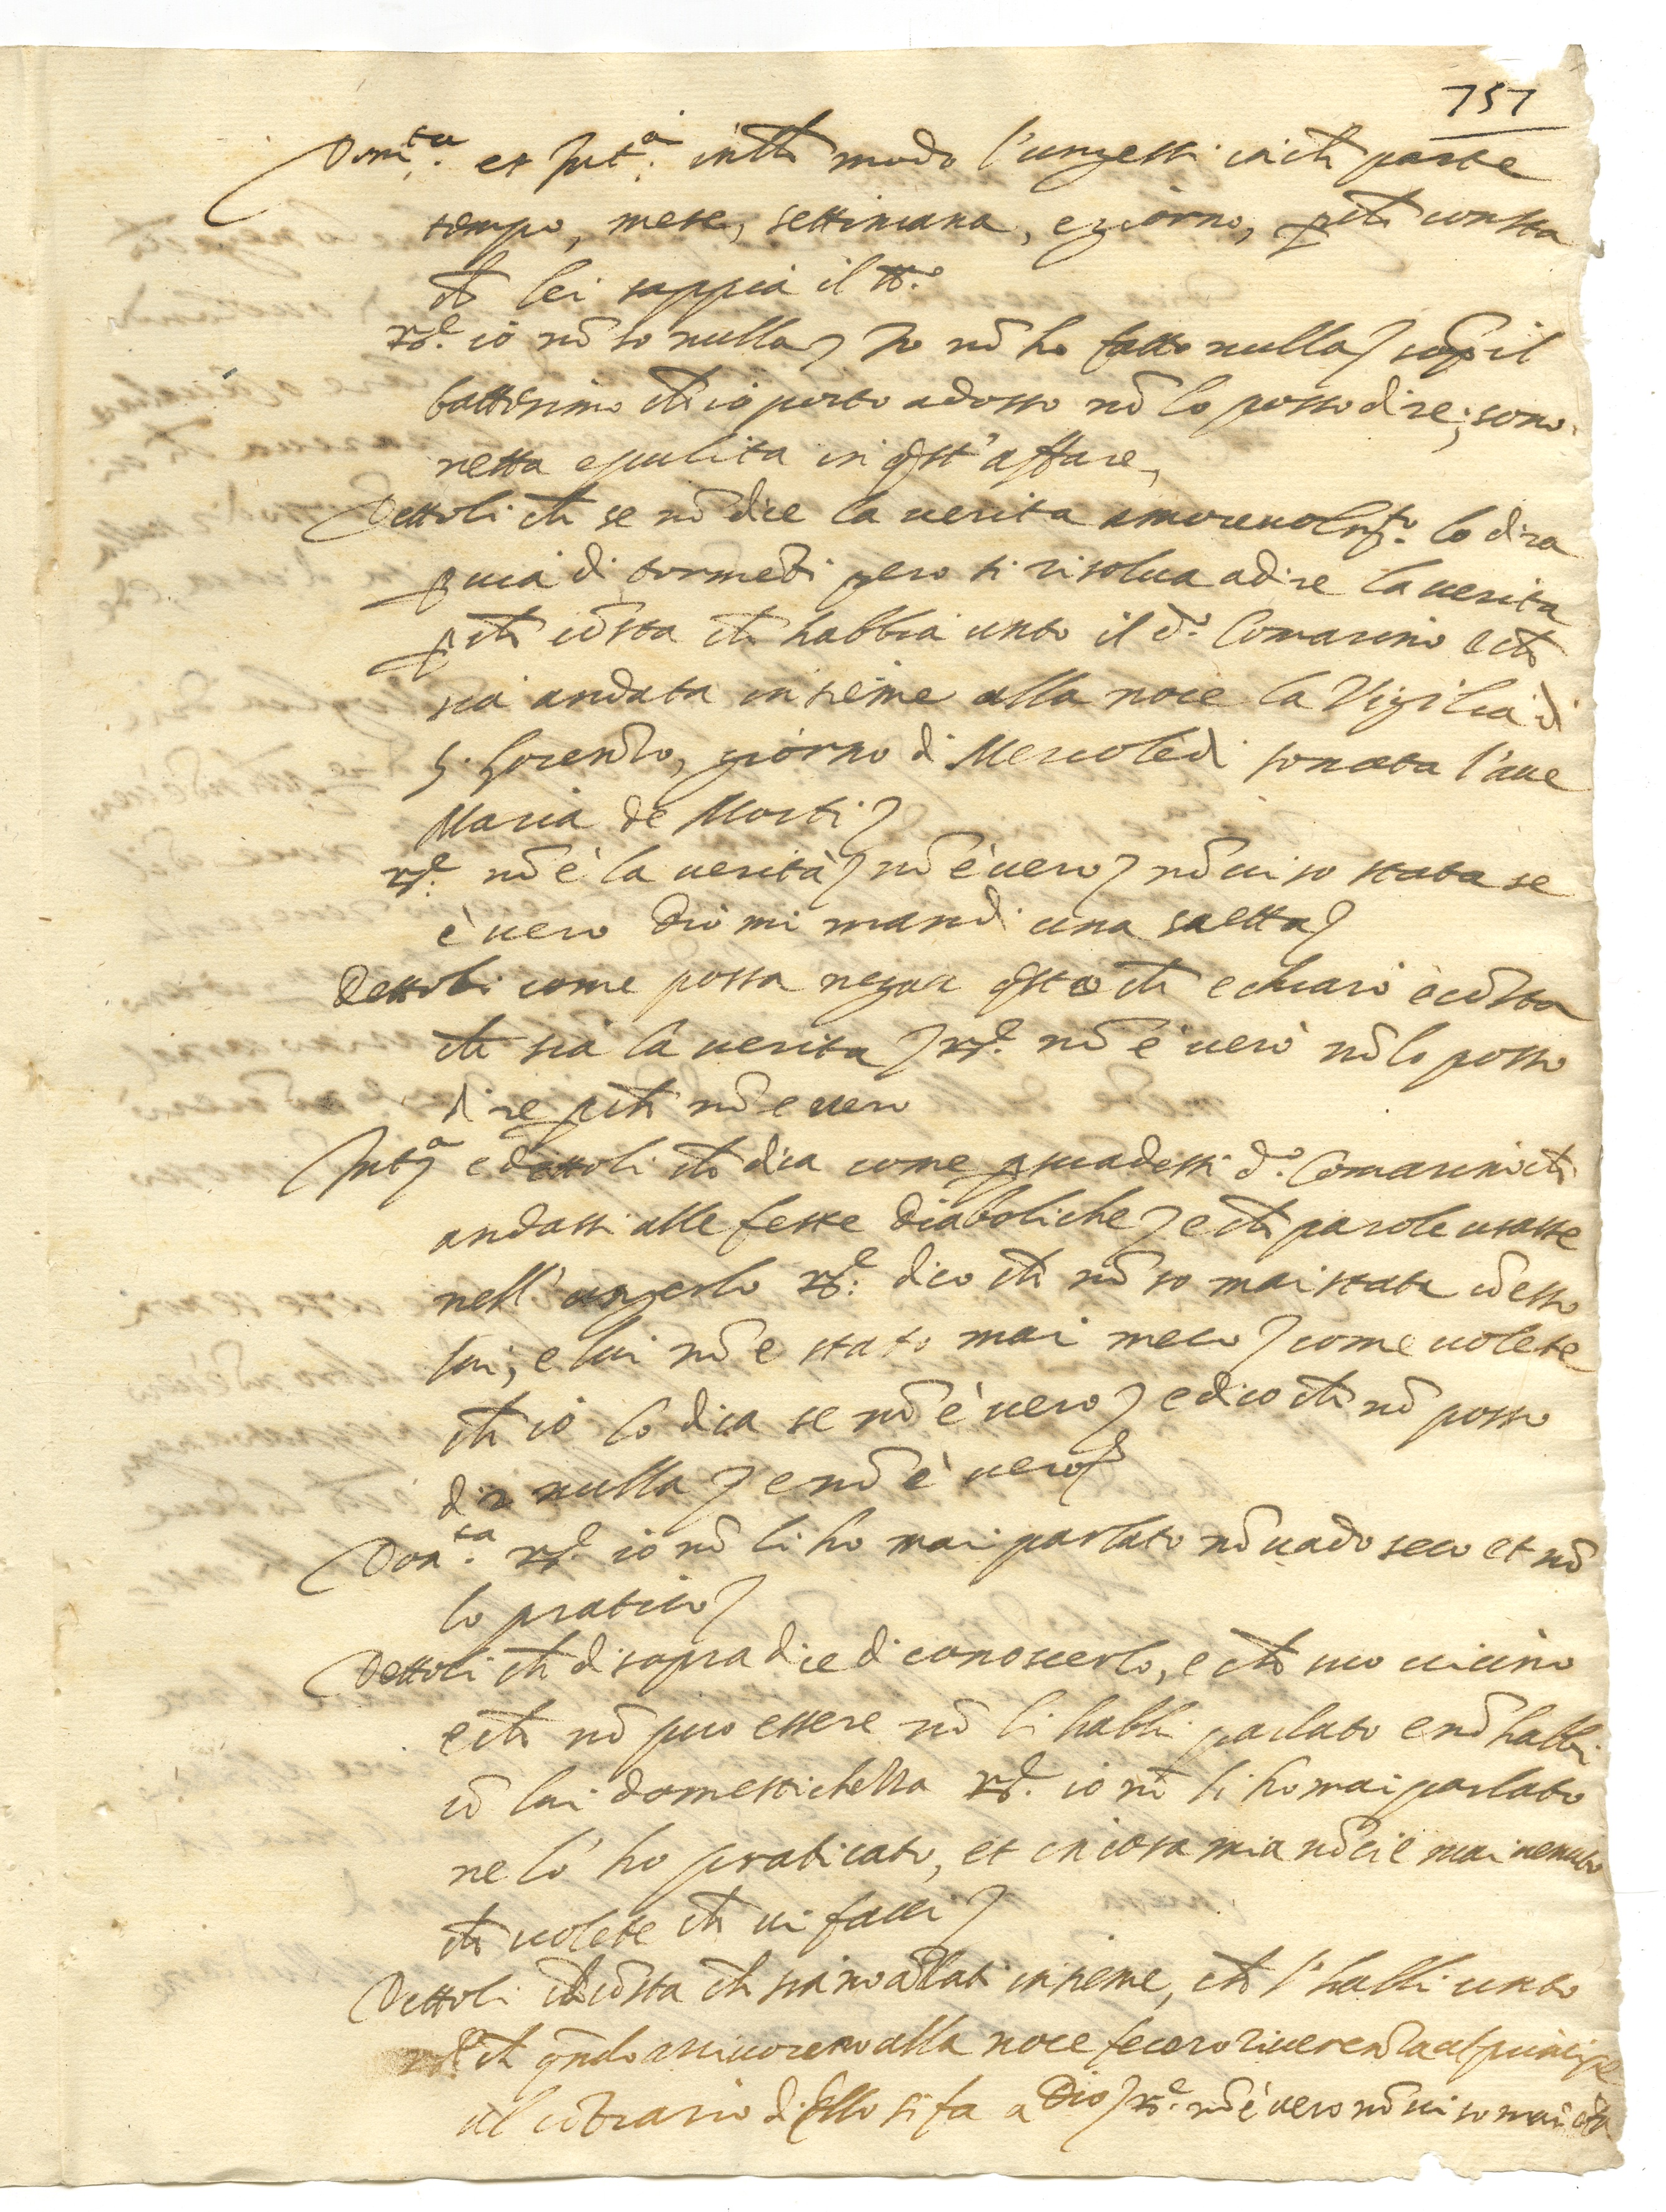 757
Dom.ta et Int.a in che modo l'ungessi in che parte
tempo, mese, settimana, e giorno, p che consta
che lei sappia il tt.o
r.e io nõ so nulla, Io nõ ho fatto nulla, sop il
battesimo che io porto adosso nõ lo posso dire, sono
netta e pulita in qst' affare,
Dettoli che se nõ dice la verita amorevolm.te lo dira
p via di tormẽti pero si risolva a dire la verita
p che cõsta che habbia unto il d.o Comarino e che
sia andata insieme alla noce la Vigilia di
S. Lorenzo, giorno di Mercoledi sonata l'ave
Maria de Morti
r.e nõ è la verità, nõ è vero, nõ ui so stata se
è vero Dio mi mandi una saetta
Dettoli come possa negar qsto che e chiaro e cõsta
che sia la verita, r.e nõ è vero nõ lo posso
dire p che nõ e vero
Int.a e dettoli che dica come psuadessi d.o Comarino che
andassi alle feste diaboliche, e che parole usasse
nell' ungerlo r.e dico che nõ so mai stata cõ esso
lui, e lui nõ e stato mai meco, come volete
che io lo dica se nõ è vero, e dico che nõ posso
dir nulla, e nõ è vero
Dom.ta r.e io nõ li ho mai parlato nõ vado seco et nõ
lo pratico
Dettoli che di sopra dice di conoscerlo, e che suo vicino
e che nõ puo essere nõ li habbi parlato e nõ habbi
cõ lui domestichezza r.e io nõ li ho mai parlato
ne lo ho praticato, et in casa mia nõ ci è mai venuto
che volete che vi facci
Dettoli che cõsta che siano andati insieme, che l'habbi unto
che qndo arrivorono alla noce fecero riverenza al principe
al cõtrario di qllo si fa a Dio, r.e nõ è vero nõ vi so mai stata